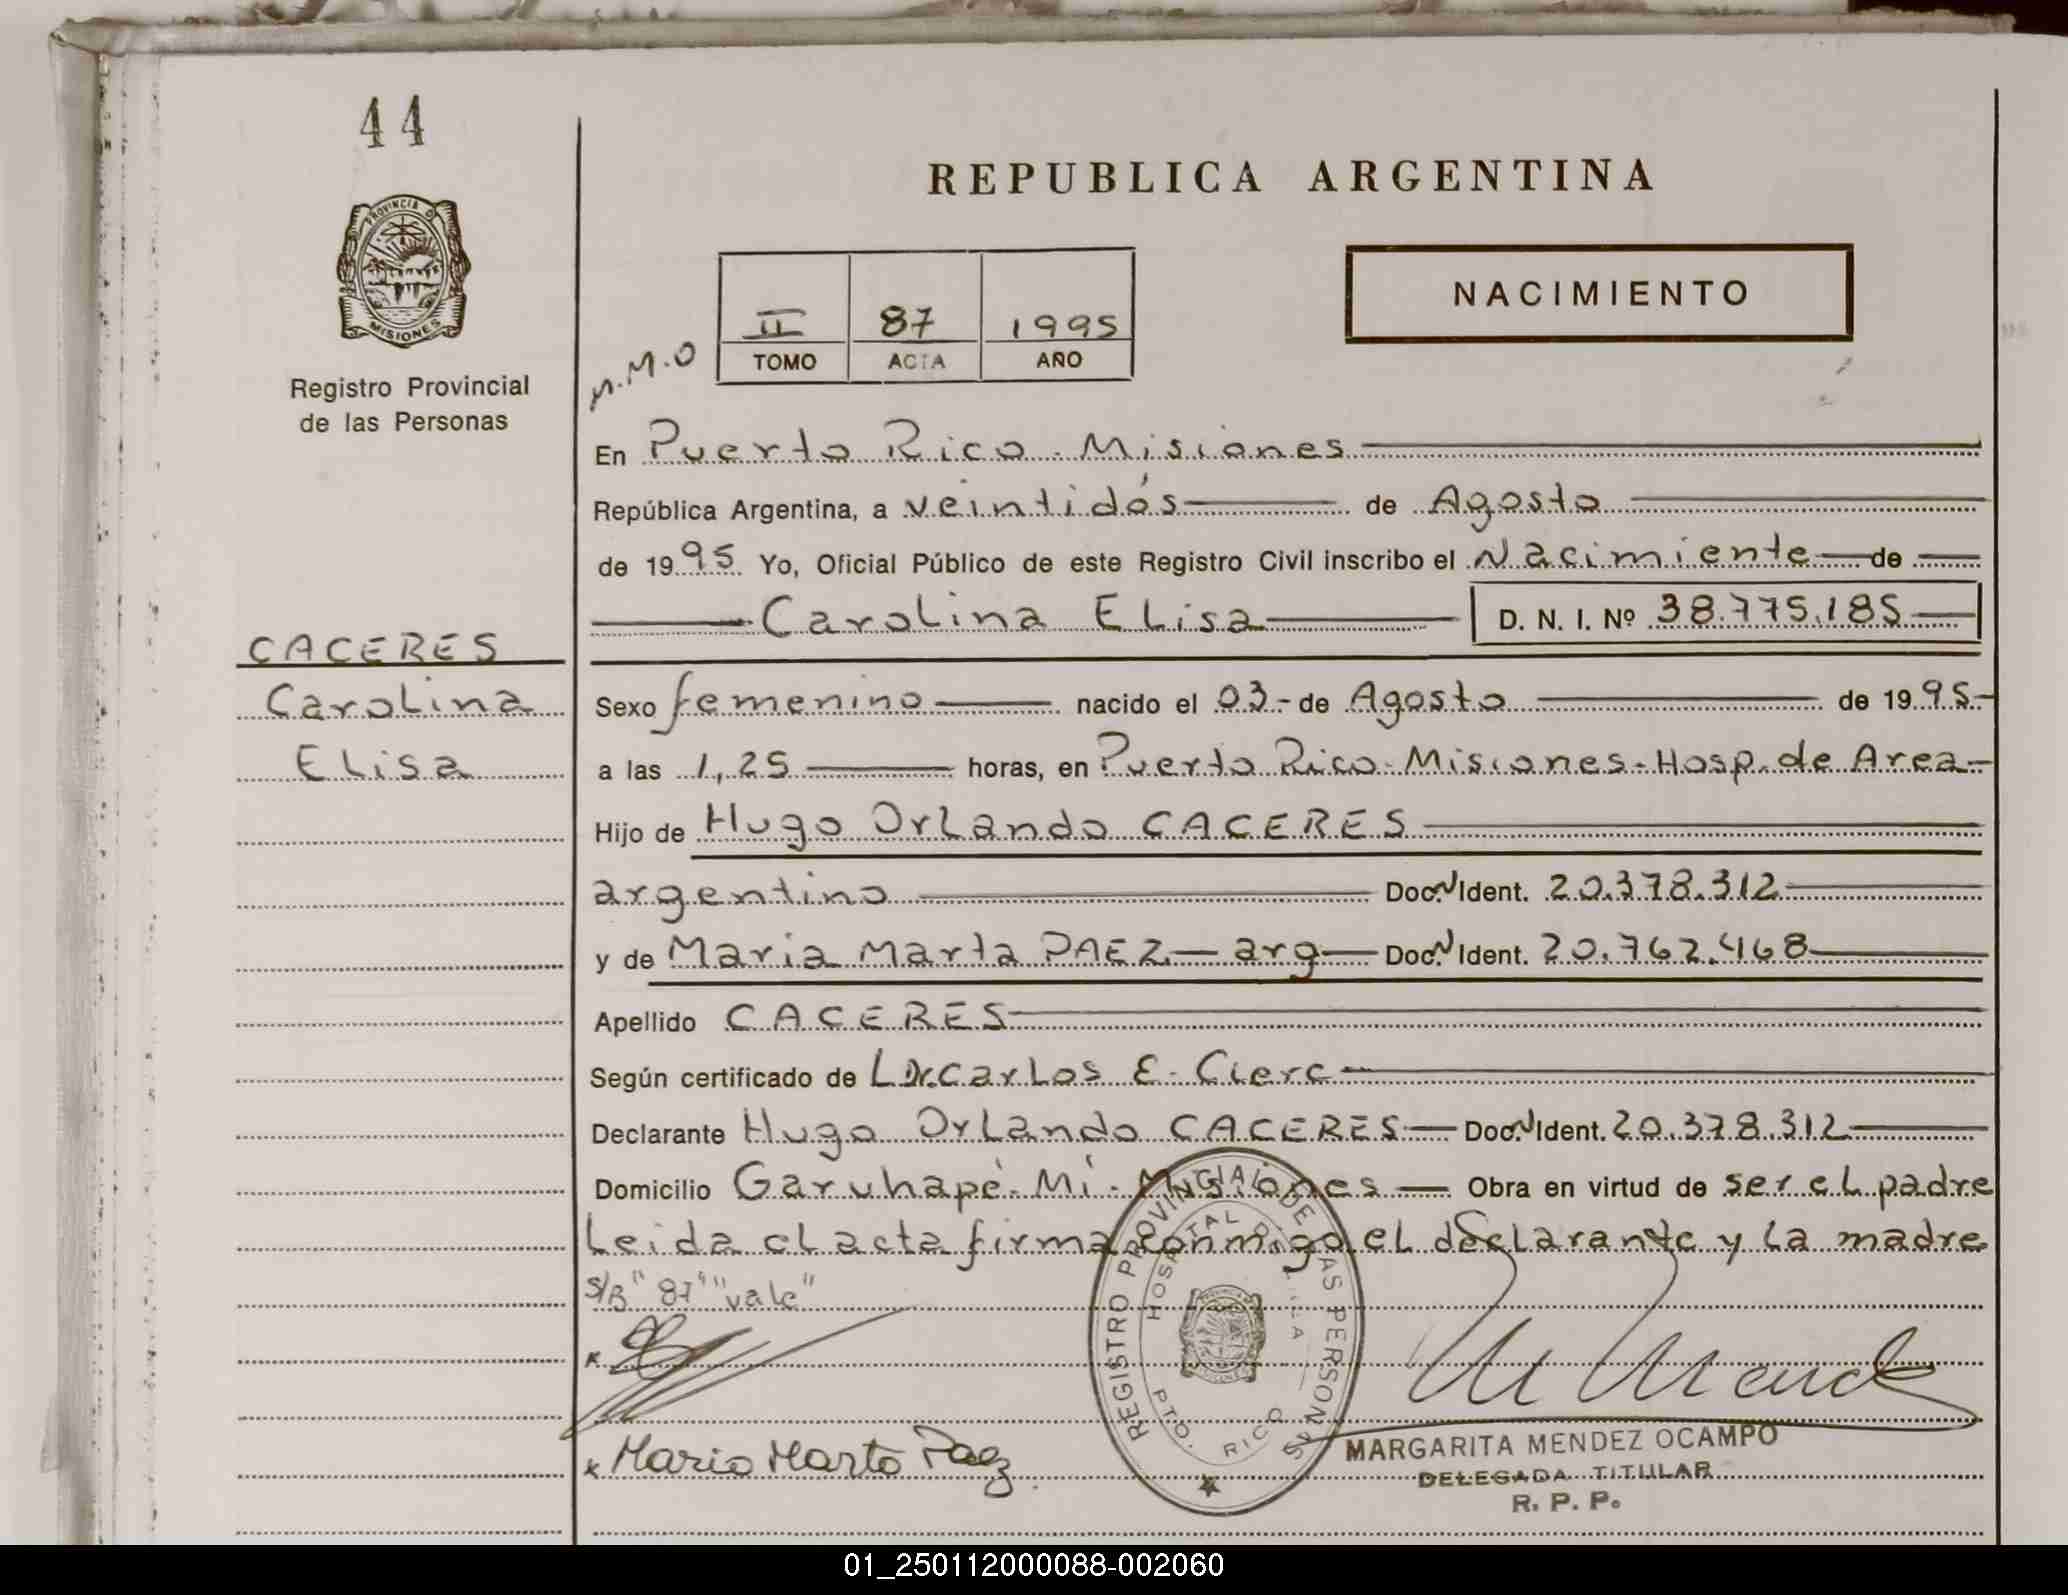 44
PROVINCIA D
MISIONES
Registro Provincial
de las Personas
CACERES
Carolina
Elisa
REPUBLICA ARGENTINA
II 87 1995
TOMO ACTA AÑO
M.M.O
NACIMIENTO
En Puerto Rico - Misiones
República Argentina, a veintidós de Agosto
de 1995 Yo, Oficial Público de este Registro Civil inscribo el Nacimiente de
Carolina Elisa D. N. I. Nº 38.775.185
Sexo femenino nacido el 03- de Agosto de 1995-
a las 1,25 horas, en Puerto Rico - Misiones - Hosp. de Area-
Hijo de Hugo Orlando CACERES
argentino Doc. N Ident. 20.378.312
y de Maria Marta PAEZ - arg - Doc. N Ident. 20.762.468
Apellido CACERES
Según certificado de Dr. Carlos E. Clerc
Declarante Hugo Orlando CACERES Doc. N Ident. 20.378.312
Domicilio Garuhapé - Mí - Misiones Obra en virtud de ser el padre
Leida el acta firma conmigo el declarante y la madre
S/B "87" "vale"
REGISTRO PROVINCIAL DE LAS PERSONAS
HOSPITAL
PTO. RICO
x Maria Marta Paez
MARGARITA MENDEZ OCAMPO
DELEGADA TITULAR
R. P. P.
01_250112000088-002060